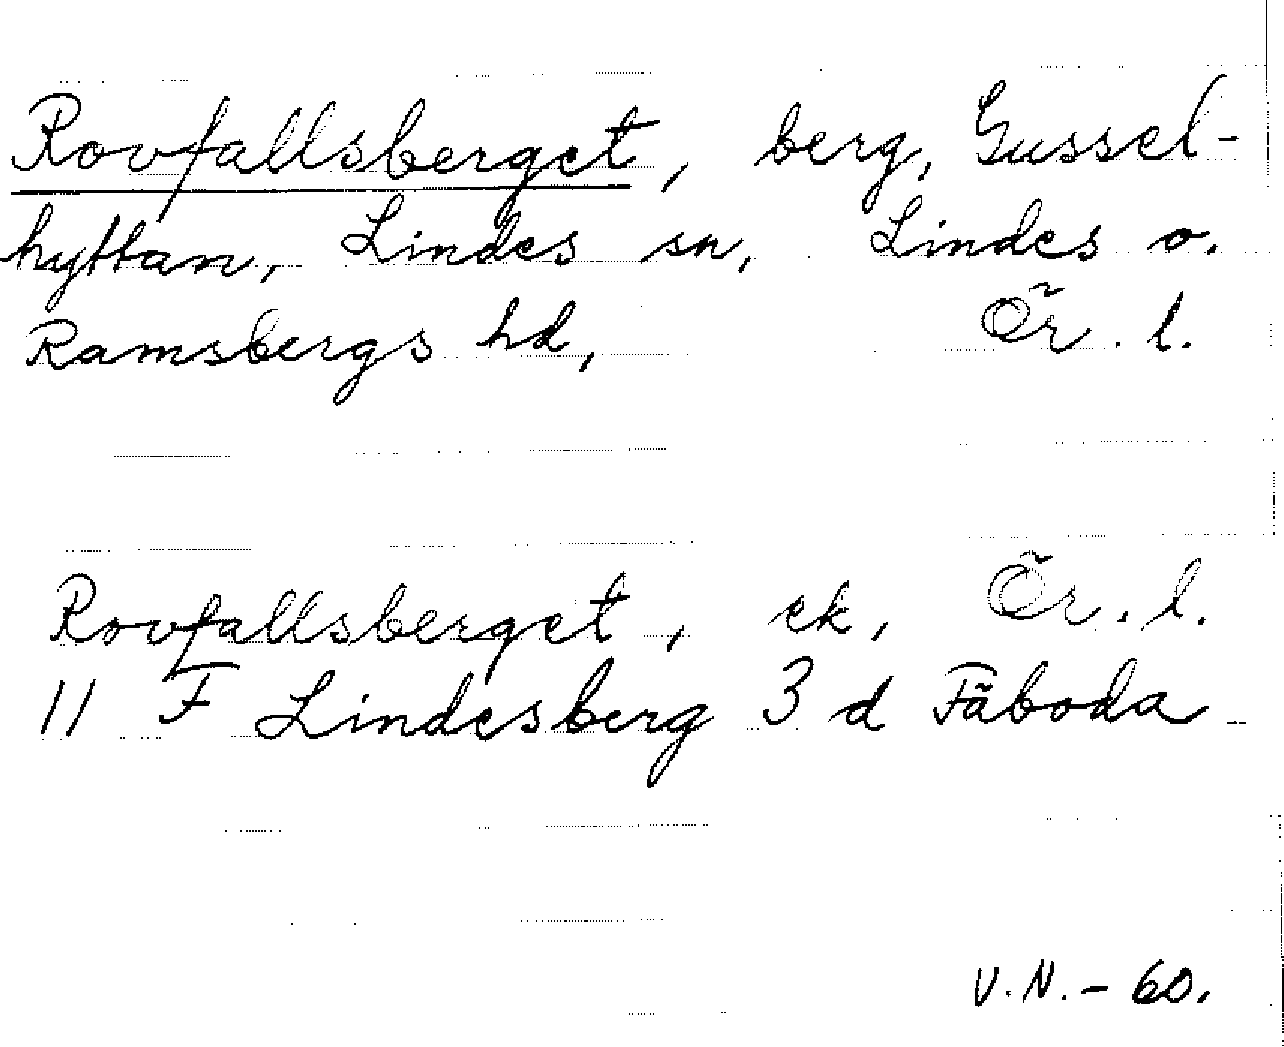 Rovfallsberget, berg, Gussel-
hyttan, Lindes sn, Lindes o.
Ramsbergs hd, Ör. l.
Rovfallsberget, ek, Ör. l.
11 F Lindesberg 3 d Fäboda
V.N. - 60.